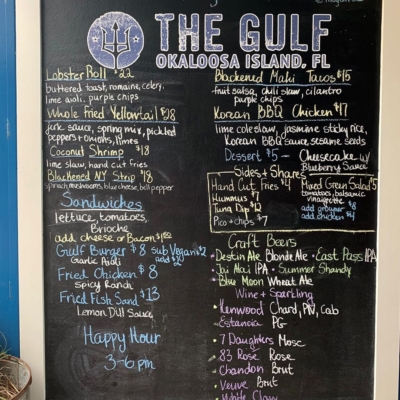 THE GULF
OKALOOSA ISLAND, FL
Lobster Roll $22
buttered toast, romaine, celery,
lime aioli, purple chips
Whole Fried Yellowtail $28
jerk sauce, spring mix, pickled
peppers + onions, limes
Coconut Shrimp $18
lime slaw, hand cut fries
Blackened NY Strip $18
spinach, mushrooms, blue cheese, bell pepper
Sandwiches
lettuce, tomatoes,
Brioche
add cheese or Bacon
Gulf Burger $8 Sub Vegan $2
Garlic Aioli
Fried Chicken $8
Spicy Ranch
Fried Fish Sand $13
Lemon Dill Sauce
Happy Hour
3-6pm
Blackened Mahi Tacos $15
fruit salsa, chili slaw, cilantro
purple chips
Korean BBQ Chicken $17
lime coleslaw, jasmine sticky rice,
Korean BBQ sauce, sesame seeds
Dessert $5 - Cheesecake w/
Blueberry Sauce
Sides + Shares
Hand Cut Fries $4
Hummus
Tuna Dip $12
Pico + chips $7
Mixed Green Salad $5
tomatoes, balsamic
vinaigrette
add grouper $8
add chicken $4
Craft Beers
• Destin Ale Blonde Ale • East Pass IPA
• Jai Alai IPA • Summer Shandy
• Blue Moon Wheat Ale
Wine + Sparkling
• Kenwood Chard, PN, Cab
• Estancia PG
• 7 Daughters Mosc
• 83 Rose Rose
• Chandon Brut
• Veuve Brut
• White Claw